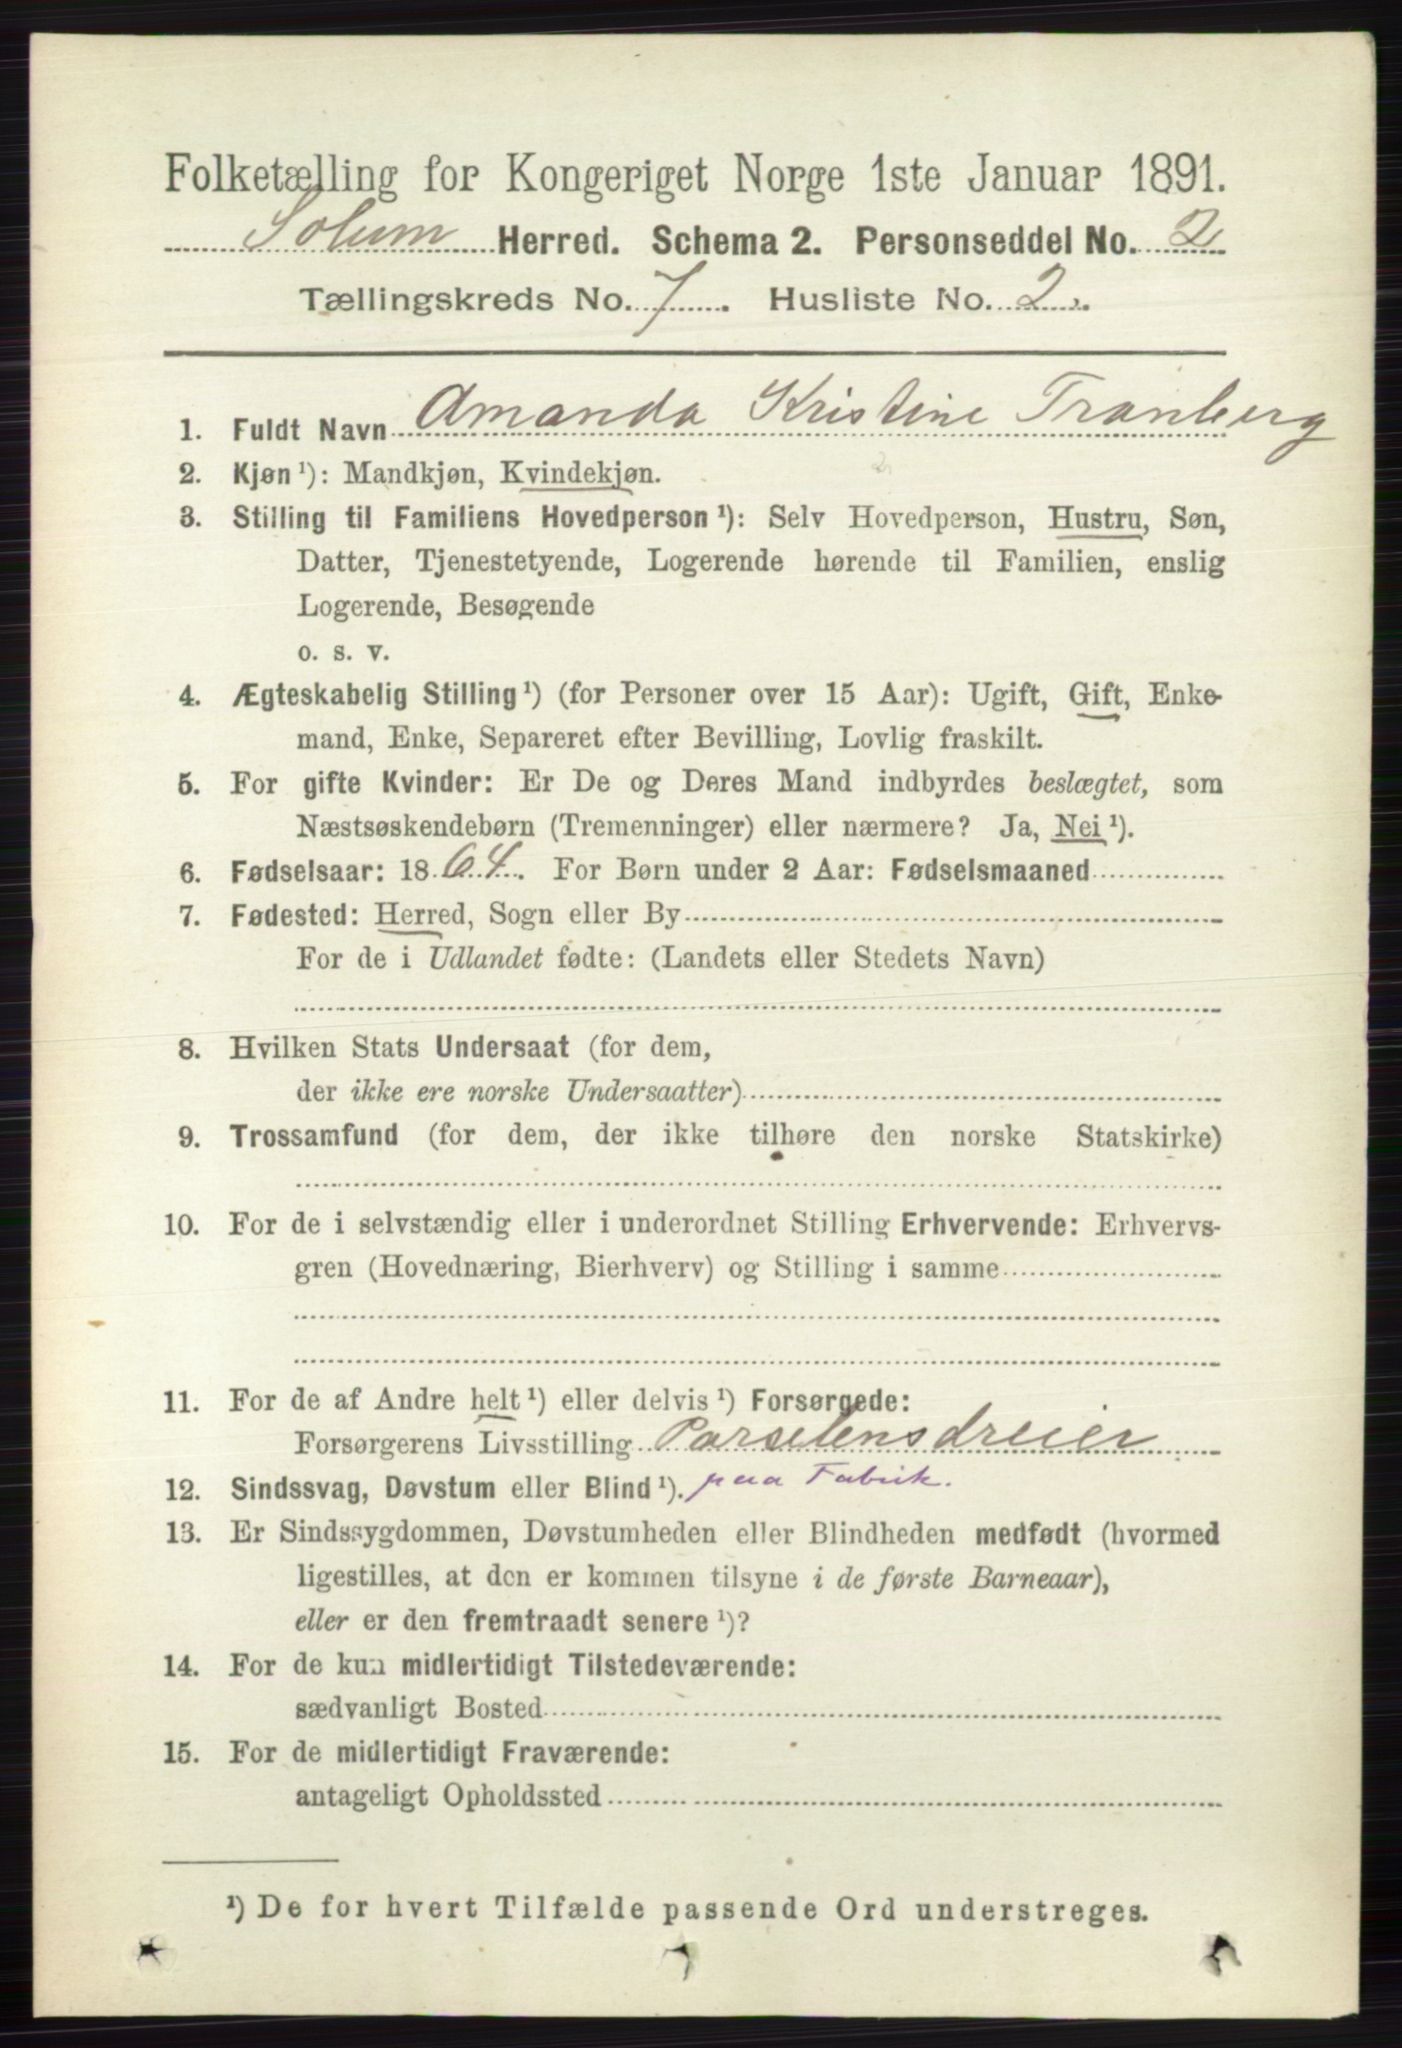 Folketælling for Kongeriget Norge 1ste Januar 1891.
Solum Herred. Schema 2. Personseddel No. 2
Tællingskreds No. 7. Husliste No. 2.
1. Fuldt Navn Amanda Kristine Tranberg
2. Kjøn¹): Mandkjøn, Kvindekjøn.
3. Stilling til Familiens Hovedperson¹): Selv Hovedperson, Hustru, Søn,
Datter, Tjenestetyende, Logerende hørende til Familien, enslig
Logerende, Besøgende
o. s. v.
4. Ægteskabelig Stilling¹) (for Personer over 15 Aar): Ugift, Gift, Enke-
mand, Enke, Separeret efter Bevilling, Lovlig fraskilt.
5. For gifte Kvinder: Er De og Deres Mand indbyrdes beslægtet, som
Næstsøskendebørn (Tremenninger) eller nærmere? Ja, Nei¹).
6. Fødselsaar: 1864. For Børn under 2 Aar: Fødselsmaaned
7. Fødested: Herred, Sogn eller By
For de i Udlandet fødte: (Landets eller Stedets Navn)
8. Hvilken Stats Undersaat (for dem,
der ikke ere norske Undersaatter)
9. Trossamfund (for dem, der ikke tilhøre den norske Statskirke)
10. For de i selvstændig eller i underordnet Stilling Erhvervende: Erhvervs-
gren (Hovednæring, Bierhverv) og Stilling i samme
11. For de af Andre helt¹) eller delvis¹) Forsørgede:
Forsørgerens Livsstilling Porselensdreier
12. Sindssvag, Døvstum eller Blind¹). paa Fabrik.
13. Er Sindssygdommen, Døvstumheden eller Blindheden medfødt (hvormed
ligestilles, at den er kommen tilsyne i de første Barneaar),
eller er den fremtraadt senere¹)?
14. For de kun midlertidigt Tilstedeværende:
sædvanligt Bosted
15. For de midlertidigt Fraværende:
antageligt Opholdssted
¹) De for hvert Tilfælde passende Ord understreges.